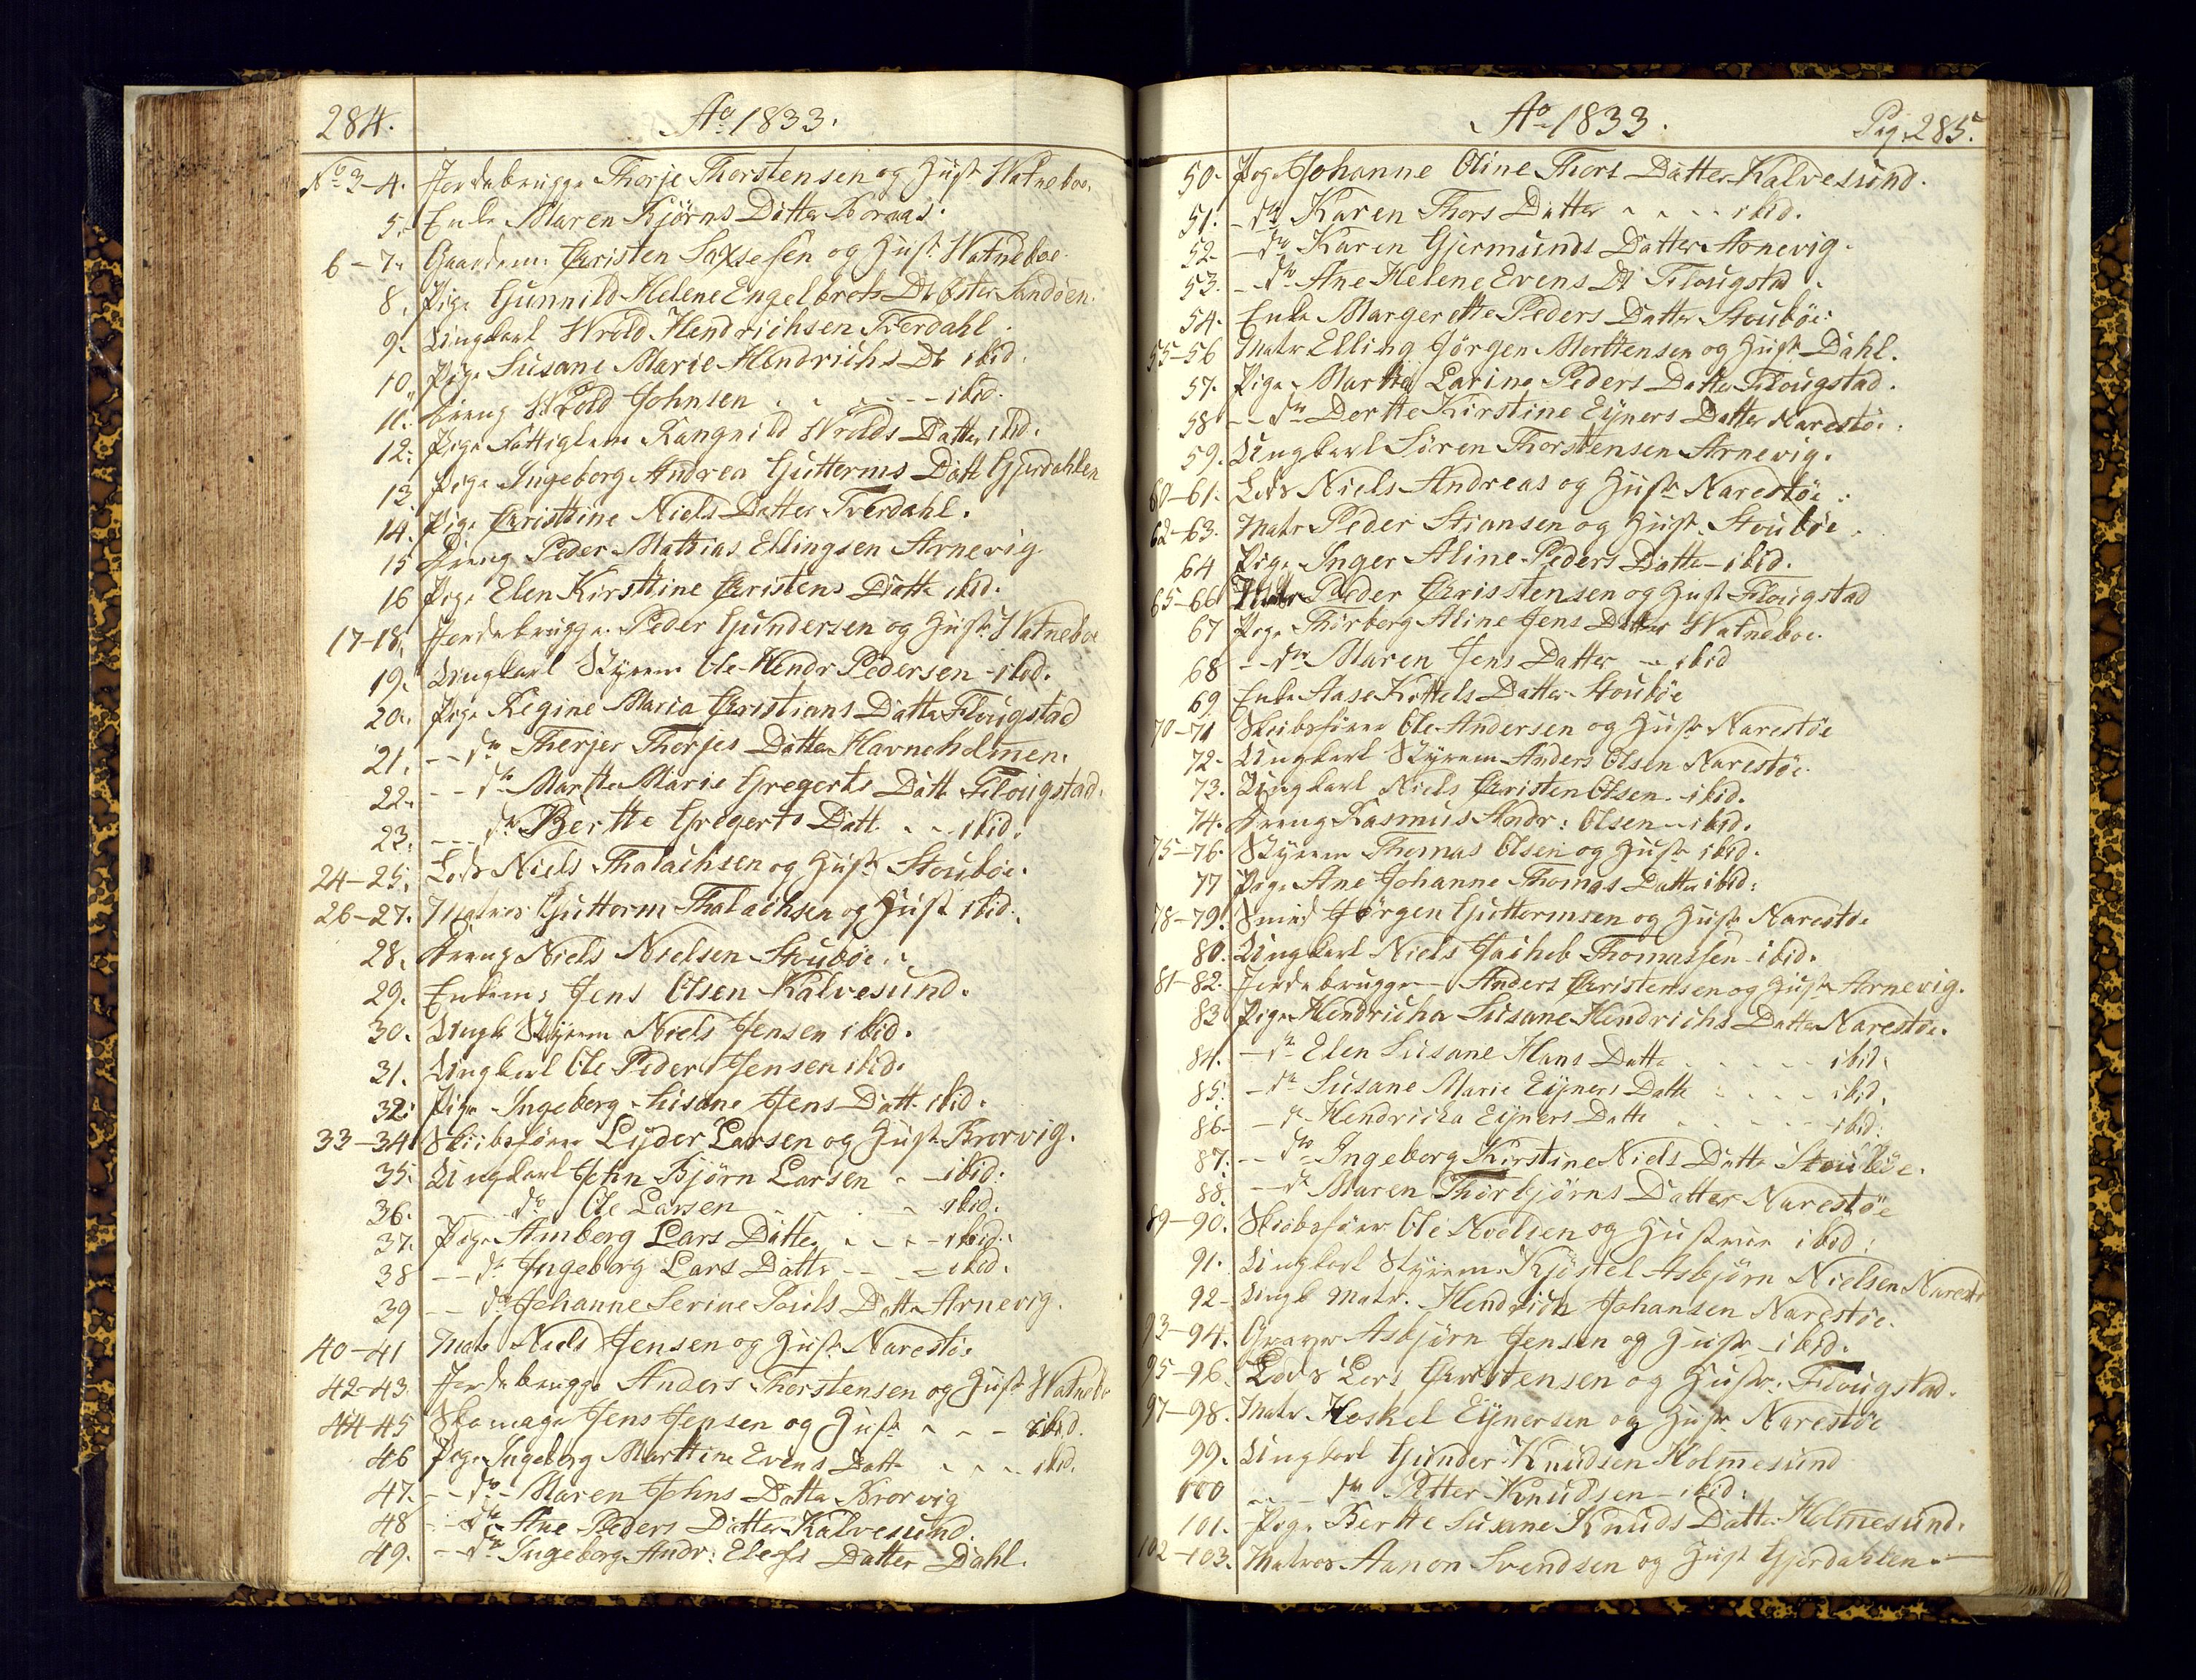 284.
Ao 1833.
No 3-4. Jordebrugge Thorje Thorstensen og Hust Watneboe.
5. Enke Maren Bjørns Datter Boraas.
6-7. Gaardem: Christen Saxsesen og Hust Watneboe.
8. Pige Gunnild Helene Engelbrets Dt Øster Sandøen.
9. Ungkarl Wrold Hendrichsen Tverdahl.
10. Pige Susane Marie Hendrichs Dt ibid.
11. Dreng Wrold Johnsen - - - ibid.
12. Pige Fattiglem Rangnild Wrolds Datter ibid.
13 Pige Ingeborg Andrea Gutterms Datt Gjerdahlen
14. Pige Christine Niels Datter Tverdahl.
15 Dreng Peder Mathias Ellingsen Arnevig
16 Pige Elen Kirsttine Christens Datte ibid.
17-18. Jordebrugge Peder Gundersen og Hust Watneboe
19. Ungkarl Styrem Ole Hendr Pedersen - ibid.
20. Pige Regine Maria Christians Datter Flougstad
21. -- do Therjer Thorjes Datter Havneholmen.
22. -- do Marthe Marie Gregerts Datt Flougstad.
23. --- do Berthe Gregerts Datt - - ibid.
24-25. Lods Niels Thalachsen og Hust Stoubøe.
26-27. Matros Guttorm Thalachsen og Hust ibid.
28. Dreng Niels Nielsen Stoubøe.
29. Enkem: Jens Olsen Kalvesund.
30. Ungk Styrm Niels Jensen ibid.
31. Ungkarl Ole Peder Jensen ibid.
32. Pige Ingeborg Susane Jens Datt ibid.
33-34 Skibsfører Lyder Larsen og Hust Brorvig.
35. Ungkarl John Bjørn Larsen - - ibid.
36. -- do Ole Larsen - - - ibid.
37. Pige Amberg Lars Datter - - - ibid.
38 -- do Ingeborg Lars Datter -- - ibid.
39 -- do Johanne Serine Pouls Datte Arnevig.
40-41 Matr Niels Jensen og Hust Narestøe
42-43. Jordebrugge Anders Thorstensen og Hust Watneb
44-45 Skomage Jens Jensen og Hust - - - ibid.
46 Pige Ingeborg Marttine Evens Datt - - - ibid.
47. -- do - Maren Johns Datte Brorvig
48 -- do - Ane Peders Datter Kalvesund.
49. -- do Ingeborg Andr: Elefs Datter Dahl.
Ao 1833.
Pag. 285.
50. Pige Johanne Oline Thors Datter Kalvesund.
51. - do Karen Thors Datter - - - - ibid.
52. - do Karen Gjermunds Datter Arnevig.
53. - do Ane Helene Evens Dt Flougstad.
54. Enke Margerette Peders Datter Stoubøe.
55-56 Matr Elling Jørgen Morttensen og Hust Dahl.
57. Pige Marthe Larine Peders Datte Flougstad.
58 -- do Dorthe Kirstine Eyners Datter Narestøe.
59. Ungkarl Søren Thorstensen Arnevig.
60-61. Lods Niels Andreas og Hust Narestøe.
62-63. Matr Peder Stiansen og Hust Stoubøe.
64 Pige Inger Aline Peders Datte - ibid.
65-66 Matr Peder Christensen og Hust Flougstad
67 Pige Thorberg Aline Jens Datter Watneboe.
68 -- do Maren Jens Datter - ibid
69 Enke Aase Kittels Datter Stoubøe
70-71 Skibsfører Ole Andersen og Hust Narestøe
72. Ungkarl Styrem Anders Olsen Narestøe.
73. Ungkarl Niels Christen Olsen - ibid.
74. Dreng Rasmus Andr: Olsen - ibid.
75-76. Styrem Thomas Olsen og Hust ibid.
77 Pige Ane Johanne Thomas Datte ibid.
78-79. Smed Jørgen Guttormsen og Hust Narestøe
80. Ungkarl Niels Jachob Thomassen - ibid.
81-82. Jordebrugge - Anders Christensen og Hust Arnevig.
83 Pige Hendricha Susane Hendrichs Datte Narestøe.
84. - do Elen Susane Hans Datte - - - - ibid.
85. - do Susane Marie Eyners Datte - - - - ibid.
86. - do Hendricha Eyners Datte - - - - ibid.
87. -- do Ingeborg Kirstine Niels Datte Stoubøe.
88. -- do Maren Thorbjørns Datter Narestøe
89-90. Skibsfører Ole Noelsen og Hustrue ibid.
91. Ungkarl Styrem Kjøstel Asbjørn Nielsen Narestø
92. Ungk Matr. Hendrich Johansen Narestøe.
93-94. Graver Asbjørn Jensen og Hustr - ibid.
95-96. Lods Lars Christensen og Hustr: Flougstad.
97-98. Matr. Hoskel Eynersen og Hustr Narestøe
99. Ungkarl Gunder Knudsen Holmesund
100 -- do Petter Knudsen - ibid.
101. Pige Berthe Susane Knuds Datte Holmesund.
102-103. Matros Aanon Svendsen og Hust Gjerdahlen.